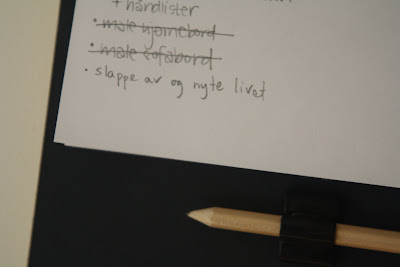 + håndlister
• male hjørnebord
• male sofabord
• slappe av og nyte livet